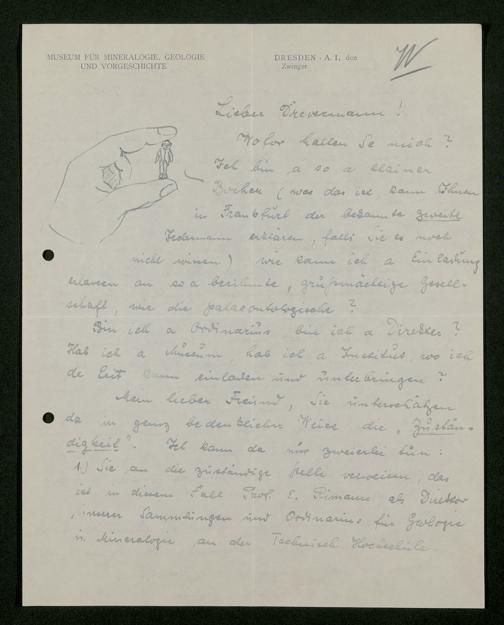 MUSEUM FÜR MINERALOGIE, GEOLOGIE
UND VORGESCHICHTE
DRESDEN - A. I, den
Zwinger
Lieber Drevermann!
Wofor halten Se mich?
Ich bin a so a klainer
Bocher (was das ist kann Ihnen
in Frankfurt der bekannte zweite
Jedermann erklären, falls Sie es noch
nicht wissen) wie kann ich a Einladung
erlassen an so a berühmte, großmächtige Gesell-
schaft, wie die palaeontologische?
Bin ich a Ordinarius bin ich a Direkter?
Hab ich a Museum, hab ich a Institut, wo ich
de Leit kann einladen und unterbringen?
Mein lieber Freund, Sie unterschätzen
da in ganz bedenklicher Weise die „Zustän-
digkeit". Ich kann da nur zweierlei tun:
1.) Sie an die zuständige Stelle verweisen, das
ist in diesem Fall Prof. E. Rimann als Direktor
unserer Sammlungen und Ordinarius für Geologie
u. Mineralogie an der Technisch. Hochschule